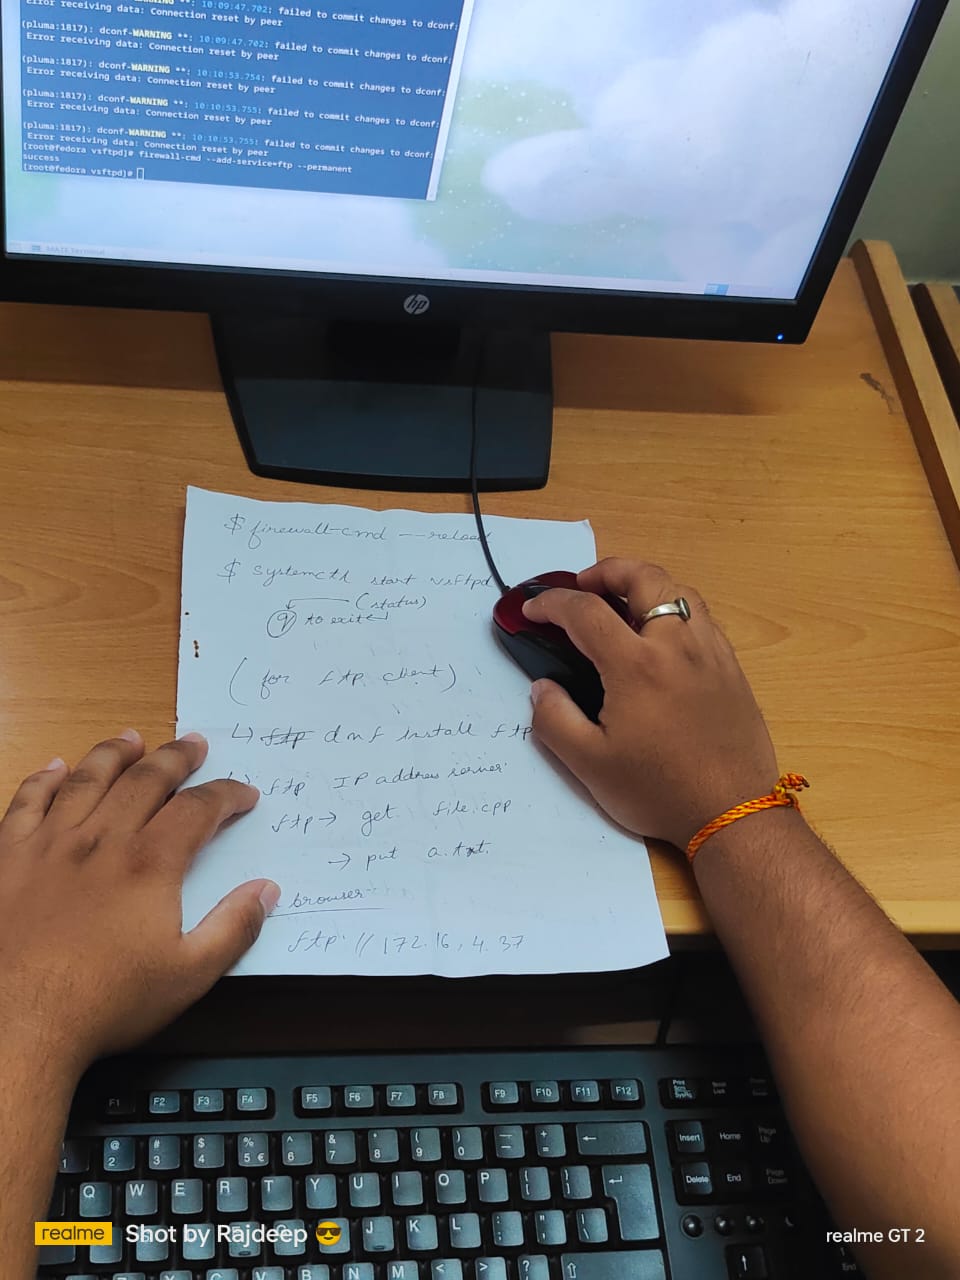 Error receiving data: Connection reset by peer
(pluma:1817): dconf-WARNING **: 10:09:47.702: failed to commit changes to dconf:
Error receiving data: Connection reset by peer
(pluma:1817): dconf-WARNING **: 10:10:53.754: failed to commit changes to dconf:
Error receiving data: Connection reset by peer
(pluma:1817): dconf-WARNING **: 10:10:53.755: failed to commit changes to dconf:
Error receiving data: Connection reset by peer
(pluma:1817): dconf-WARNING **: 10:10:53.755: failed to commit changes to dconf:
Error receiving data: Connection reset by peer
[root@fedora vsftpd]# firewall-cmd --add-service=ftp --permanent
success
[root@fedora vsftpd]#
MATE Terminal
hp
$ firewall-cmd --reload
$ systemctl start vsftpd
(status)
q to exit
(for ftp client)
↳ ftp dnf install ftp
ftp IP address server
ftp → get file.cpp
→ put a.txt.
browser
ftp: // 172.16.4.37
F1 F2 F3 F4 F5 F6 F7 F8 F9 F10 F11 F12
1 @ 2 # 3 $ 4 % 5 € ^ 6 & 7 * 8 ( 9 ) 0 — - + =
Insert Home Page Up
Q W E R T Y U I O P { [ } ]
Delete End Page Down
J K L : ; " ' | \
B N M < > ?
realme Shot by Rajdeep 😎
realme GT 2